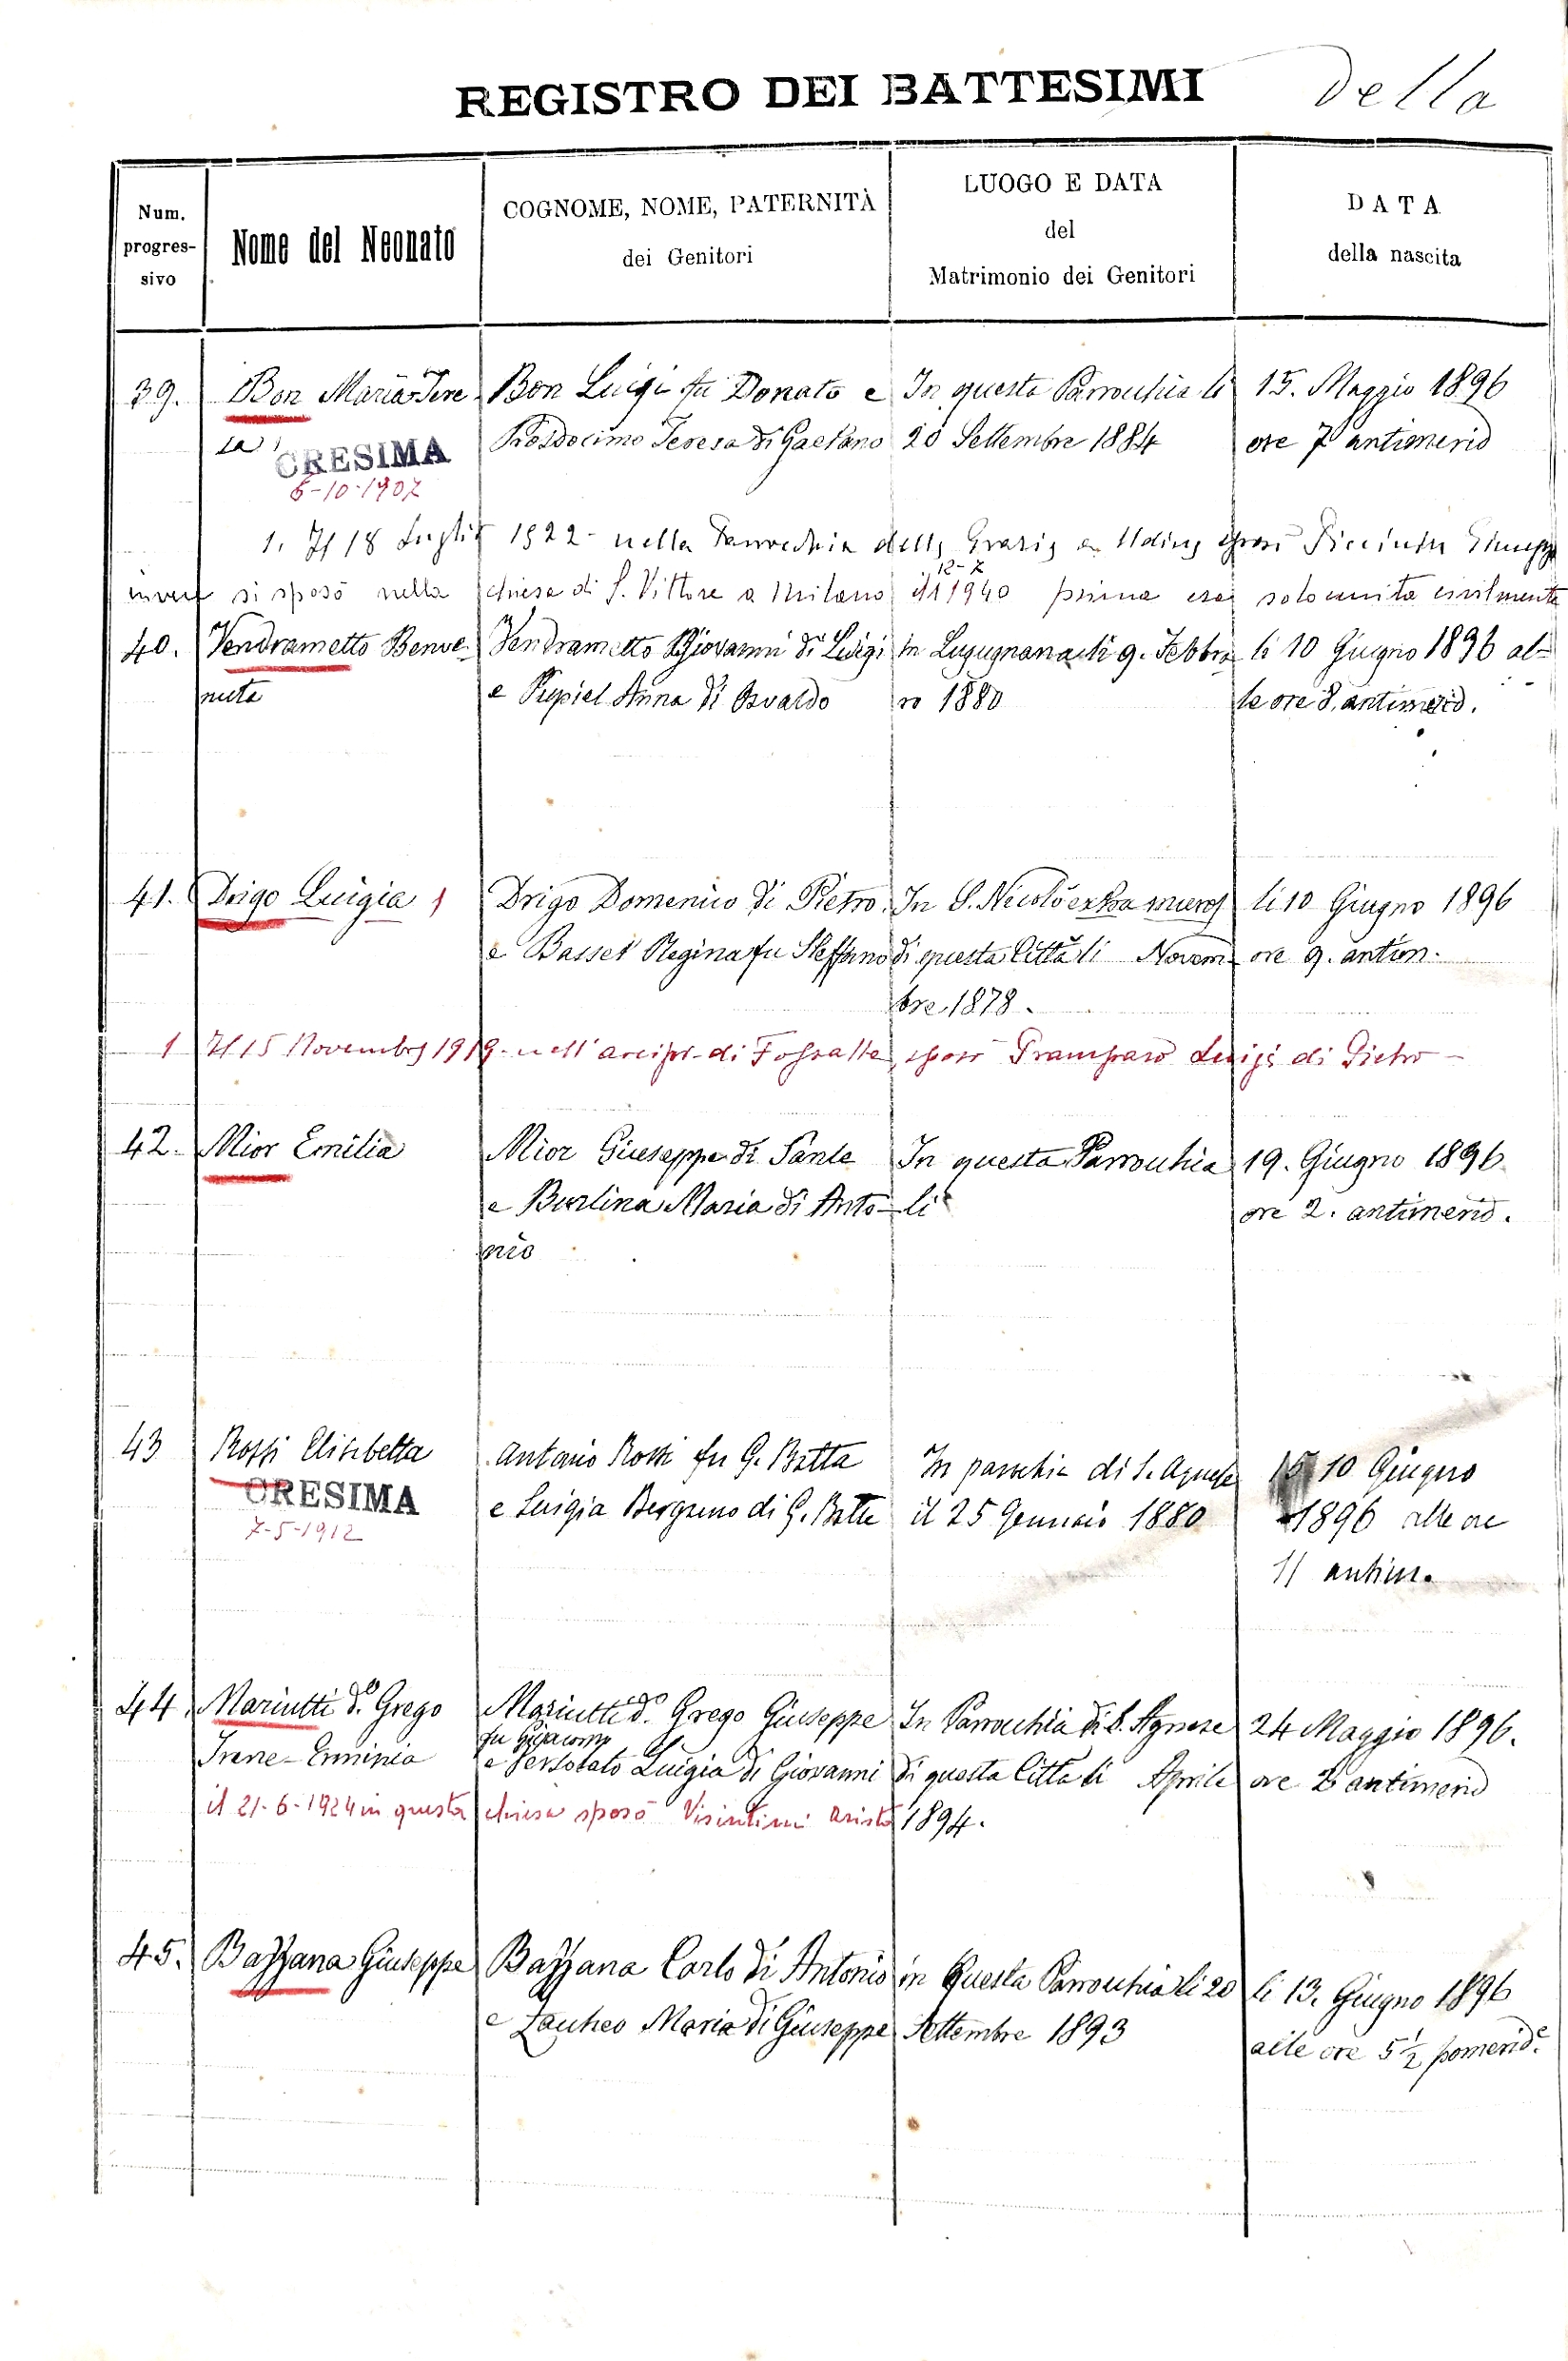 REGISTRO DEI BATTESIMI della
Num. progres- sivo
Nome del Neonato
COGNOME, NOME, PATERNITÀ
dei Genitori
LUOGO E DATA
del
Matrimonio dei Genitori
DATA
della nascita
39. Bon Maria Tere Bon Luigi fu Donato e In questa Parrochia li 15. Maggio 1896
sa 1 Prosdocimo Teresa di Gaetano 20 Settembre 1884 ore 7 antimerid
CRESIMA
6-10-1907
1. Il 18 Luglio 1922 - nella Parrochia delle Grazie a Udine sposò Giuseppe
invece si sposò nella chiesa di S. Vittore a Milano il 1940 prima era solo unita civilmente
12-X
40. Vendrametto Benve- Vendrametto Giovanni di Luigi in Lugugnana li 9. Febbra li 10 Giugno 1896 al-
nuta e Pupiel Anna di Osvaldo ro 1880 le ore 8. antimerid.
41. Drigo Luigia 1 Drigo Domenico di Pietro In S. Nicolò extra muros li 10 Giugno 1896
e Basset Regina fu Steffano di questa Città li Novem ore 9. antim.
bre 1878.
1 Il 15 Novembre 1919 - nell'arcipr. di Fossalta sposò Luigi di Pietro -
42. Mior Emilia Mior Giuseppe di Sante In questa Parrochia 19. Giugno 1896
e Burlina Maria di Anto- li ore 2. antimerid.
nio
43 Rossi Elisabetta Antonio Rossi fu G. Batta In parochia di S. Agnese 10 Giugno
e Luigia Bergamo di G. Batta il 25 Gennaio 1880 1896 alle ore
CRESIMA
7-5-1912
11 antim.
44. Mariutti do. Grego Mariutti do. Grego Giuseppe In Parrochia di S. Agnese 24 Maggio 1896.
fu Giacomo
Irene-Erminia e Luigia di Giovanni di questa Città li Aprile ore antimerid
il 21-6-1924 in questa chiesa sposò Visintini Aristo 1894.
45. Bazzana Giuseppe Bazzana Carlo di Antonio in questa Parrochia li 20 li 13. Giugno 1896
e Zanheo Maria di Giuseppe Settembre 1893 alle ore 5 1/2 pomerid.e